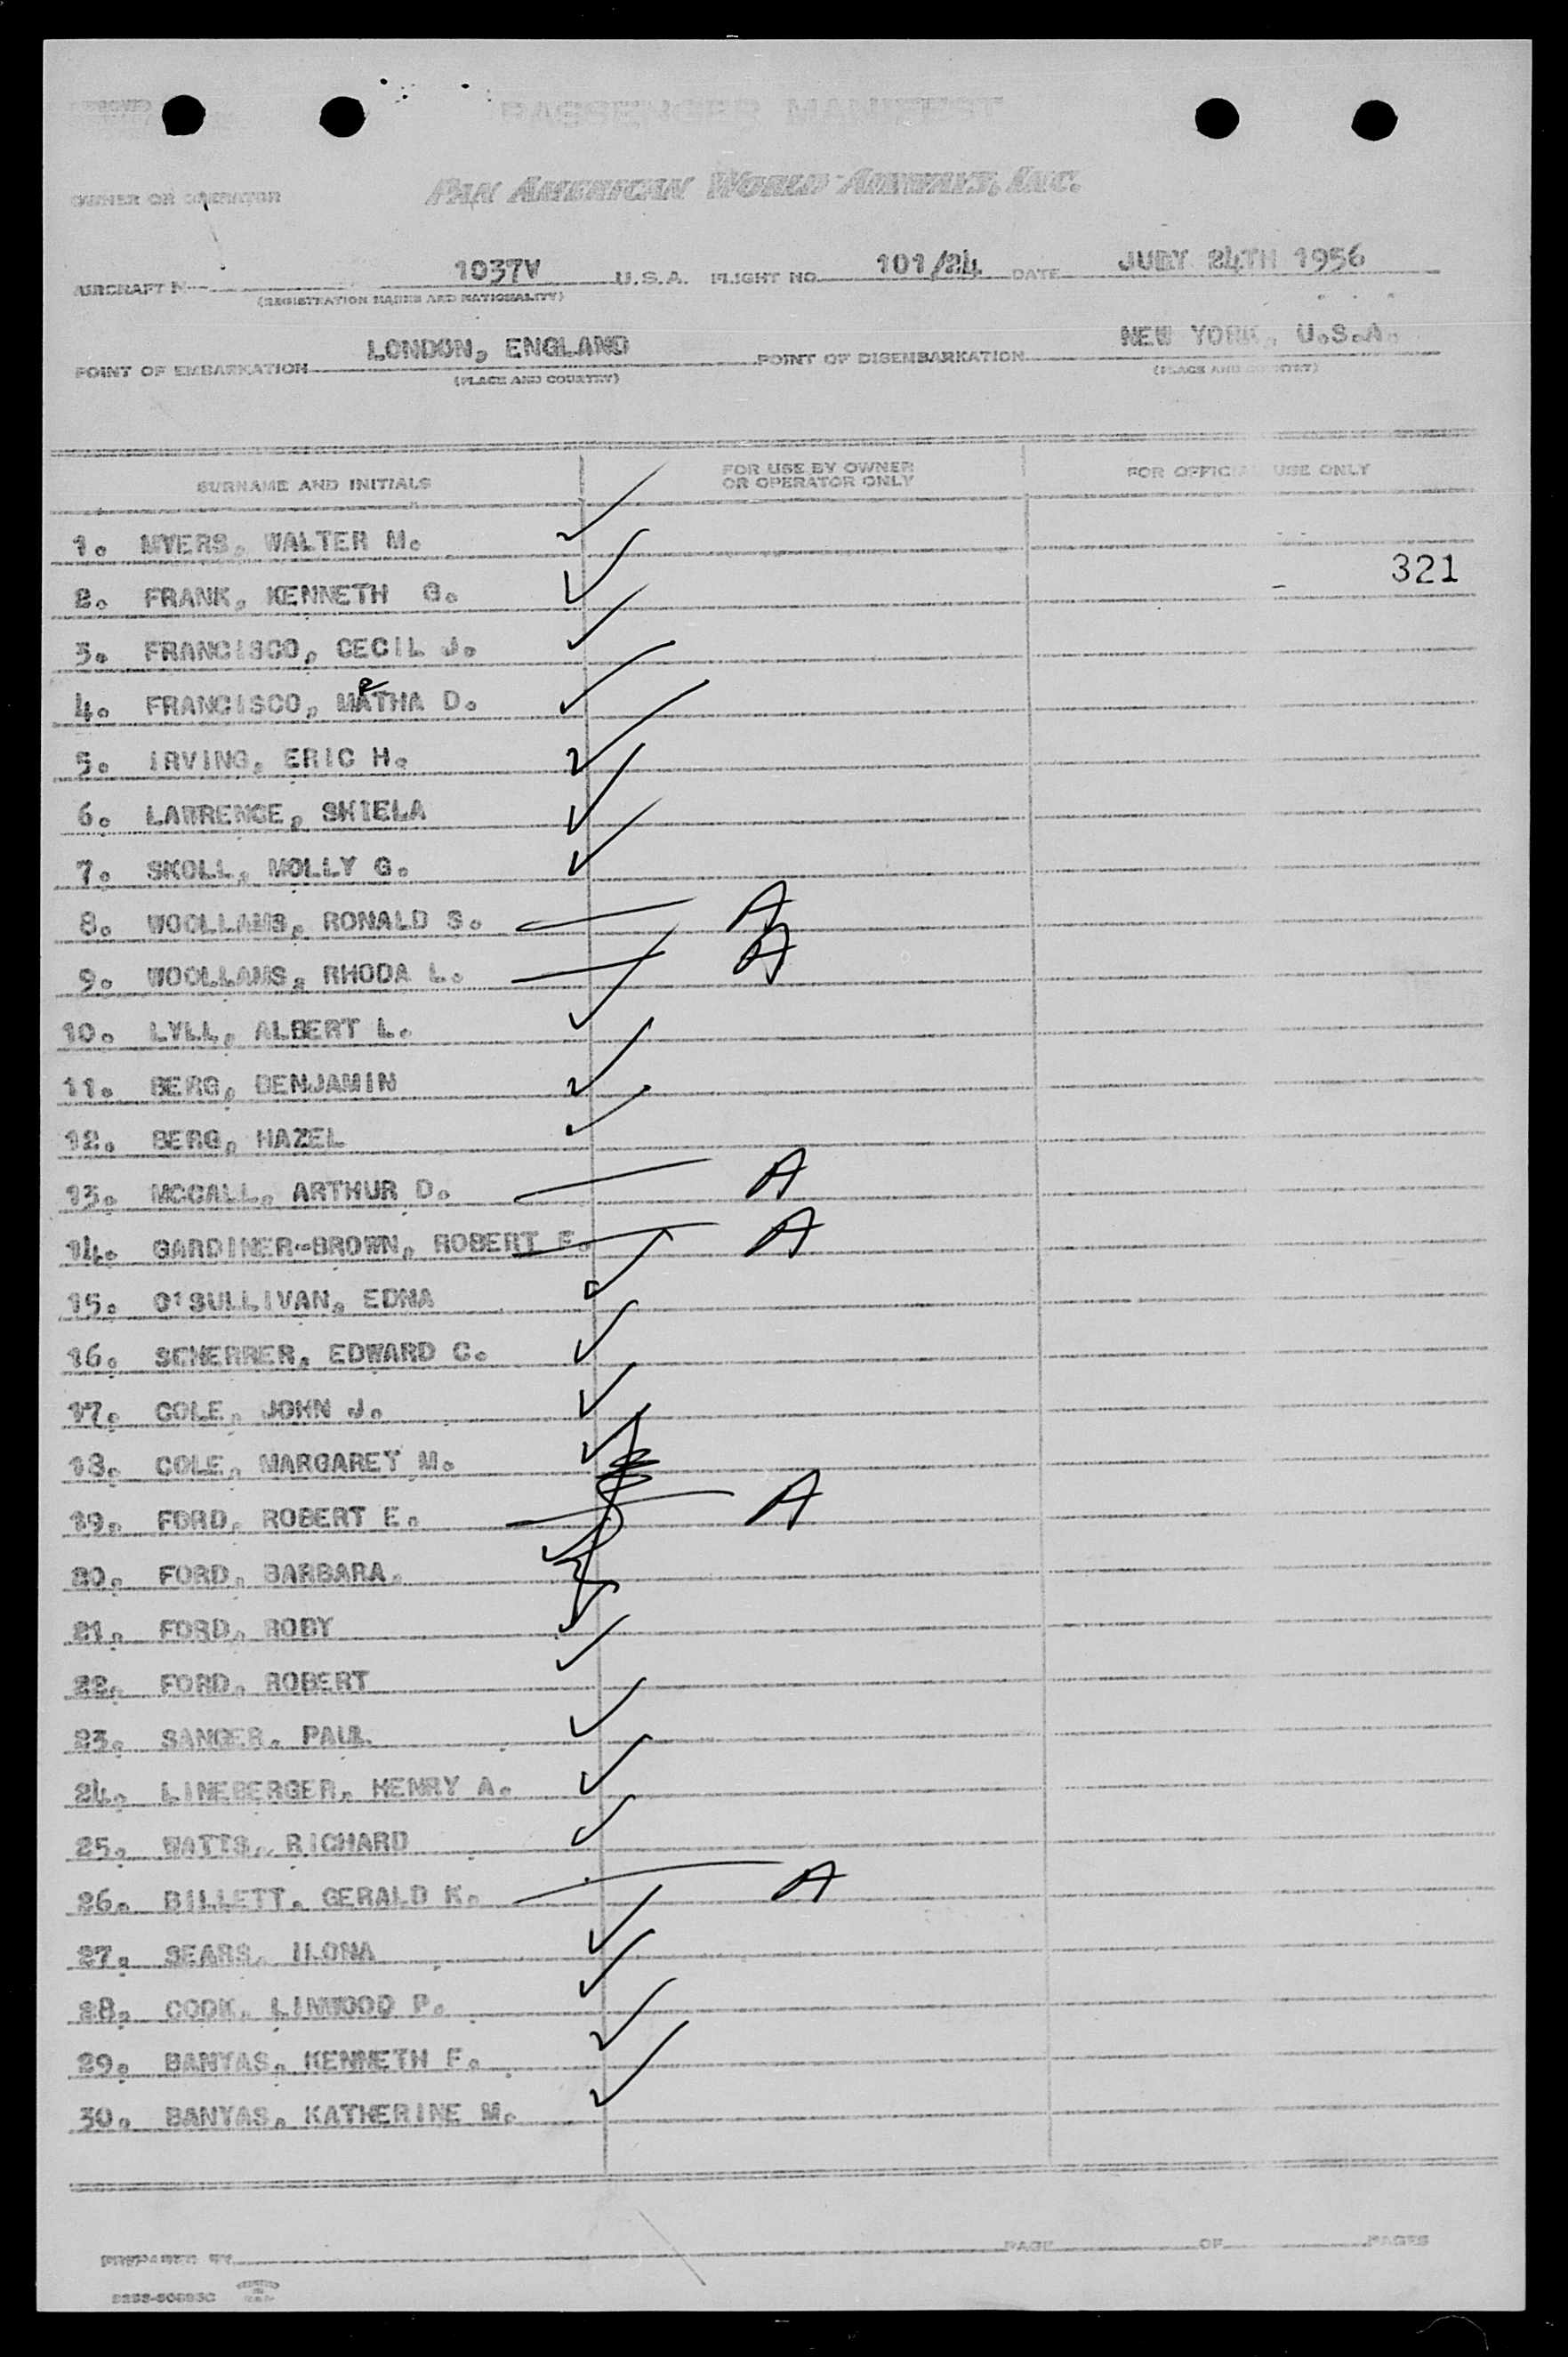 PASSENGER MANIFEST
OWNER OR OPERATOR PAN AMERICAN WORLD AIRWAYS, INC.
AIRCRAFT N 1037V U.S.A. FLIGHT NO. 101/24 DATE JULY 24TH 1956
(REGISTRATION MARKS AND NATIONALITY)
POINT OF EMBARKATION LONDON, ENGLAND POINT OF DISEMBARKATION NEW YORK, U.S.A.
(PLACE AND COUNTRY) (PLACE AND COUNTRY)
SURNAME AND INITIALS FOR USE BY OWNER OR OPERATOR ONLY FOR OFFICIAL USE ONLY
1. MYERS, WALTER M. ✓
321
2. FRANK, KENNETH G. ✓
3. FRANCISCO, CECIL J. ✓
4. FRANCISCO, MARTHA D. ✓
5. IRVING, ERIC H. ✓
6. LAWRENCE, SHIELA ✓
7. SKOLL, MOLLY G. ✓
8. WOOLLAMS, RONALD S. — A
9. WOOLLAMS, RHODA L. — A
10. LYLL, ALBERT L. ✓
11. BERG, BENJAMIN ✓
12. BERG, HAZEL ✓
13. MCCALL, ARTHUR D. — A
14. GARDINER-BROWN, ROBERT F. — A
15. O'SULLIVAN, EDNA ✓
16. SCHERRER, EDWARD C. ✓
17. COLE, JOHN J. ✓
18. COLE, MARGARET M. ✓
19. FORD, ROBERT E. — A
20. FORD, BARBARA. ✓
21. FORD, RODY ✓
22. FORD, ROBERT ✓
23. SANGER, PAUL ✓
24. LINEBERGER, HENRY A. ✓
25. WATTS, RICHARD ✓
26. BILLETT, GERALD K. — A
27. SEARS, ILONA ✓
28. COOK, LINWOOD P. ✓
29. BANYAS, KENNETH F. ✓
30. BANYAS, KATHERINE M. ✓
PREPARED BY PAGE OF PAGES